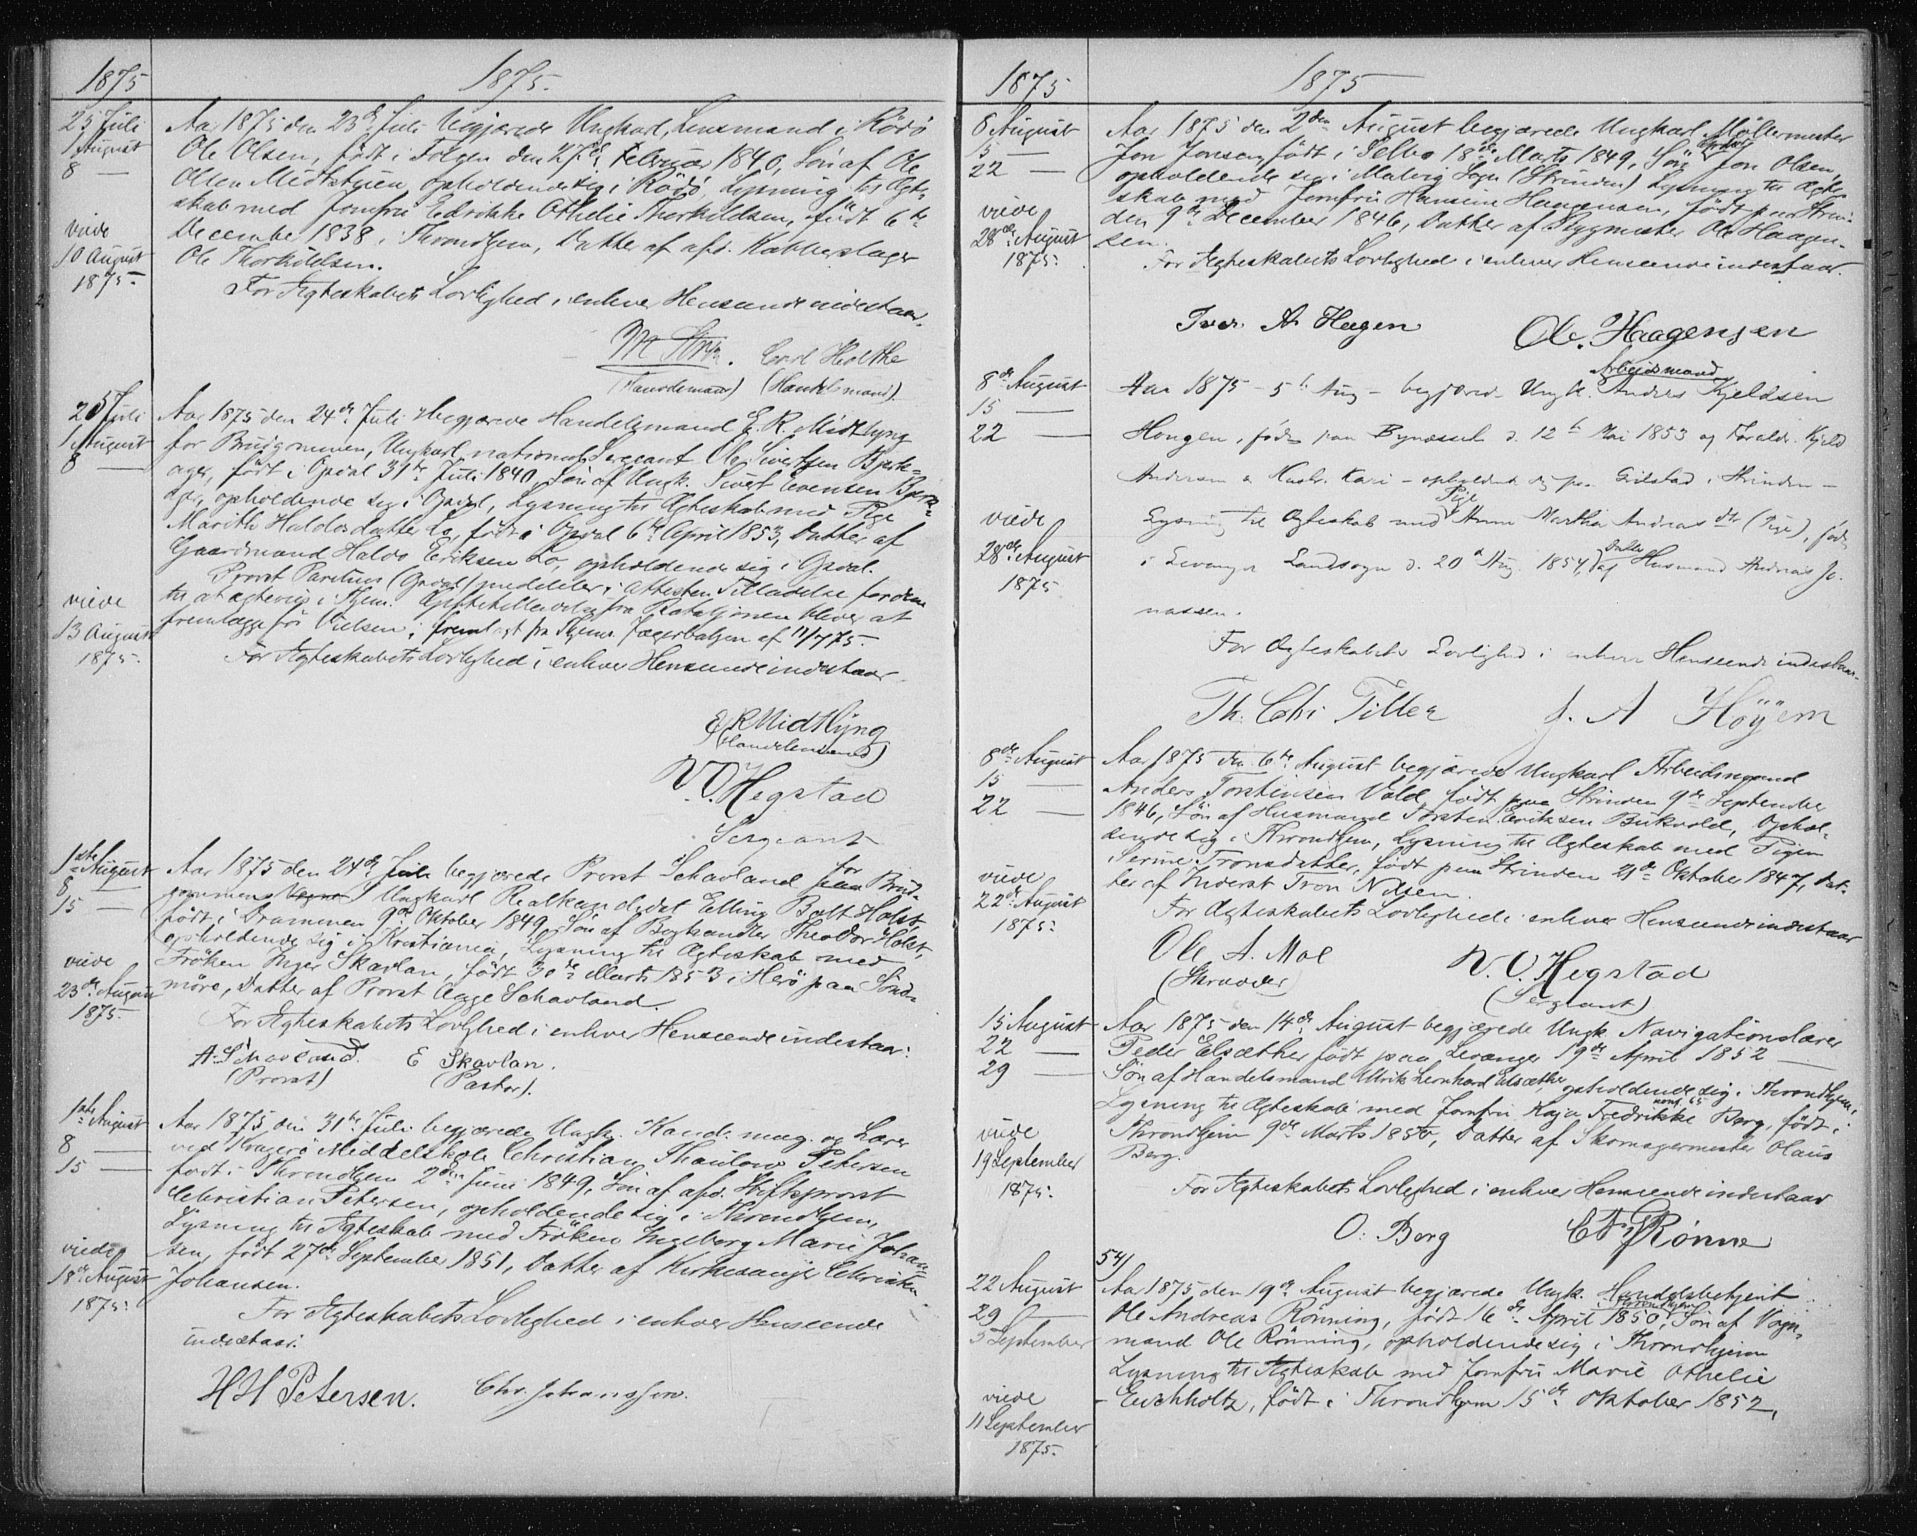 1875
1875.
25 Juli
1 August
8 —
viede
10 August
1875.
Aar 1875 den 23de Juli begjærede Ungkarl, Lensmand i Rödö
Ole Olsen, født i Tolgen den 27de Februar 1840, Søn af Ole
Olsen Midtstuen, opholdende sig i Rödö, Lysning til Ægte-
skab med Jomfru Fredrikke Othelie Thorkildsen, født 6te
December 1838 i Throndhjem, Datter af afd. Kobberslager
Ole Thorkildsen.
For Ægteskabets Lovlighed i enhver Henseende indestaar.
Carl Holthe
(Handelsmand)
25 Juli
1 August
8 —
viede
13 August
1875.
Aar 1875 den 24de Juli begjærede Handelsmand E. R. Midtlyng
for Brudgommen, Ungkarl, national Sergeant Ole Sivertsen Bjerk-
ager, født i Opdal 31te Juli 1840, Søn af Ungk. Sivert Evensen Bjerk-
ager, opholdende sig i Opdal, Lysning til Ægteskab med Pige
Marith Haldosdatter Lo, født i Opdal 6te April 1853, Datter af
Gaardmand Haldo Eriksen Lo, opholdende sig i Opdal.
Provst Parelius (Opdal) meddeler i Attesten Tilladelse for dem
til at ægtevies i Thjem. fra Bataljonen bliver at
fremlægge før Vielsen; fremlagt fra Thjems Jægerbataljon af 11/7 75.
For Ægteskabets Lovlighed i enhver Henseende indestaar.
E R Midtlyng
(Handelsmand)
N. O. Hegstad
Sergeant
1ste August
8 —
15 —
viede
23de August
1875.
Aar 1875 den 24de Juli begjærede Provst Schavland for Brud-
gommen Ungkarl Realkandidat Elling Bolt Holst,
født i Drammen 9de Oktober 1849, Søn af Boghandler Theodor Holst,
opholdende sig i Kristiania, Lysning til Ægteskab med
Frøken Inger Skavlan, født 30te Marts 1853 i Herö paa Sönd-
möre, Datter af Provst Aage Schavland.
For Ægteskabets Lovlighed i enhver Henseende indestaar:
A. Schavland. E Skavlan.
(Provst) (Pastor).
1ste August
8 —
15 —
viede
18de August
1875.
Aar 1875 den 31te Juli begjærede Ungk. Kand. mag. og Lærer
ved Kragerö Middelskole Christian Thaulow Petersen
født i Throndhjem 2den Juni 1849, Søn af afd. Stiftsprovst
Christian Petersen, opholdende sig i Throndhjem,
Lysning til Ægteskab med Frøken Ingeborg Marie Johan-
sen, født 27de September 1851, Datter af Kirkesanger Christen
Johansen.
For Ægteskabets Lovlighed i enhver Henseende
indestaar.
H H Petersen. Chr. Johanssen.
1875
1875
8 August
15 —
22 —
viede
28de August
1875.
Aar 1875 den 2den August begjærede Ungkarl Møllermester
Jon Jonsen, født i Selbo 18de Marts 1849, Søn af Jon Olsen,
opholdende sig i Malvig Sogn (Strinden) Lysning til Ægte-
skab med Jomfru Hansine Haagensen, født paa Strin-
den 9de December 1846, Datter af Bygmester Ole Haagen-
sen.
For Ægteskabets Lovlighed i enhver Henseende indestaar.
Iver A Hagen Ole Haagensen
8de August
15 —
22 —
viede
28de August
1875
Arbeidsmand
Aar 1875 – 5te Aug – begjæred Ungk. Anders Kjeldsen
Hongen, født paa Bynæsset d. 12te Mai 1853 af Foræld. Kjeld
Andersen & Hustr. Kari – opholdende sig paa Gidstad i Strinden –
Lysning til Ægteskab med Pige Anne Martha Andreas dt (Pige), født
i Levanger Landsogn d. 20de Aug. 1854, Datter af Husmand Andreas Jo-
nassen.
For Ægteskabets Lovlighed i enhver Henseende indestaar.
Th. Chr Tiller J. A Höÿem
8de August
15 —
22 —
viede
22de August
1875.
Aar 1875 den 6te August begjærede Ungkarl Arbeidsmand
Anders Torstensen Vold, født paa Strinden 9de September
1846, Søn af Husmand Torsten Eriksen Bukvold, Ophol-
dende sig i Throndhjem, Lysning til Ægteskab med Pigen
Serine Tronsdatter, født paa Strinden 21de Oktober 1847, Dat-
ter af Inderst Tron Nilsen.
For Ægteskabets Lovlighed i enhver Henseende indestaar
Ole A. Moe N. O. Hegstad
(Skrædder) (Sergeant)
15 August
22 —
29 —
viede
19 September
1875.
Aar 1875 den 14de August begjærede Ungk. Navigationslærer
Peder Elsæther født paa Levanger 19de April 1852 —
Søn af Handelsmand Ulrik Leonhard Elsæther, opholdende sig i Throndhjem,
Lysning til Ægteskab med Jomfru Kaja Fredrikke Berg, født i
Throndhjem 9de Marts 1850, Datter af Skomagermester Olaus
Berg.
For Ægteskabets Lovlighed i enhver Henseende indestaar
O. Berg Rönne
54/
22 August
29 —
5 September
viede
11 September
1875.
Aar 1875 den 19de August begjærede Ungk. Handelsbetjent
Ole Andreas Rönning, født i Throndhjem 16de April 1850, Søn af Vogn-
mand Ole Rönning, opholdende sig i Throndhjem
Lysning til Ægteskab med Jomfru Marie Othelie
Eichholtz, født i Throndhjem 15de Oktober 1852,